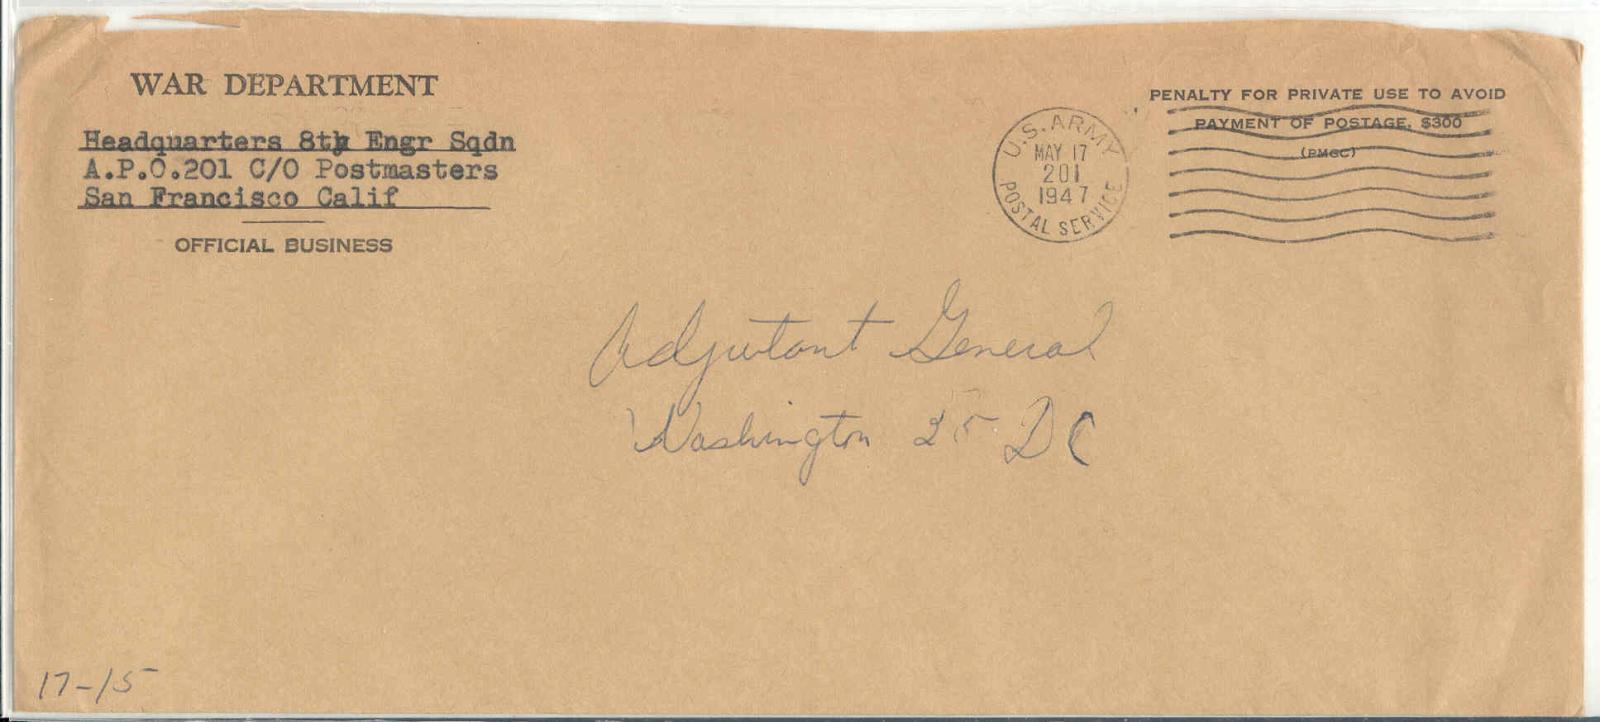 WAR DEPARTMENT
Headquarters 8th Engr Sqdn
A.P.O.201 C/O Postmasters
San Francisco Calif
OFFICIAL BUSINESS
U.S. ARMY
MAY 17
201
1947
POSTAL SERVICE
PENALTY FOR PRIVATE USE TO AVOID
PAYMENT OF POSTAGE, $300
(PMGC)
Adjutant General
Washington 25 DC
17-15